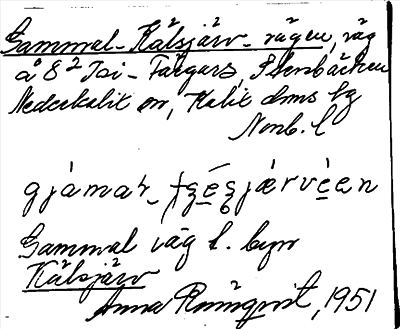 Gammal-Kälsjärv-vägen, väg
å 8² Tai-Färgars, Stenbäcken
Nederkalix sn, Kalix dms bg
Nonb. l
gjámaʅ
Gammal väg t. byn
Kälsjärv
Anna Rönnqvist, 1951